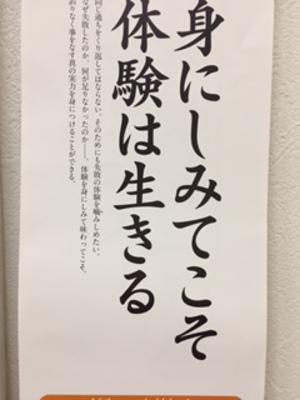 身にしみてこそ
体験は生きる
同じ過ちをくり返してはならない。そのためにも失敗の体験を噛みしめたい。
なぜ失敗したのか、何が足りなかったのか――。体験を身にしみて味わってこそ、
誤りなく事をなす真の実力を身につけることができる。